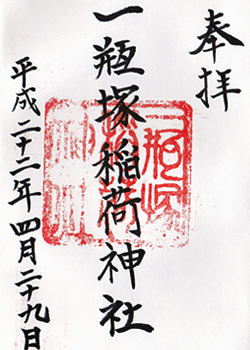 奉拝
一瓶塚稲荷神社
平成二十二年四月二十九日